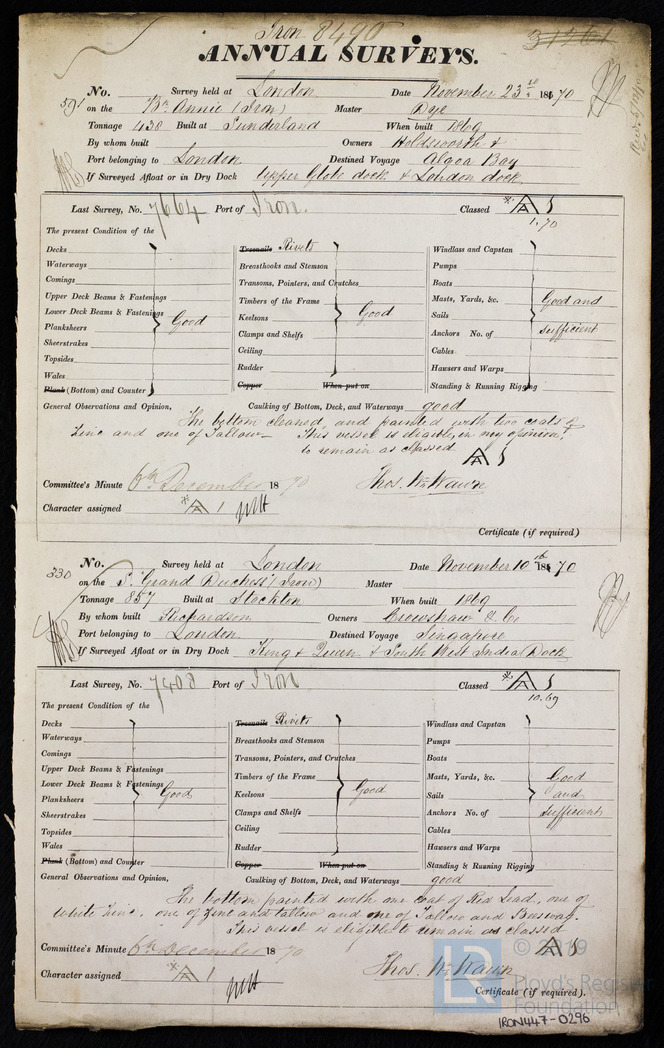 Iron 8490
31261
ANNUAL SURVEYS.
591
No. Survey held at London Date November 23rd 1870
on the Bk Annie (Iron) Master Dye
Tonnage 438 Built at Sunderland When built 1869
By whom built Owners Holdsworth &
Port belonging to London Destined Voyage Algoa Bay
If Surveyed Afloat or in Dry Dock Upper Globe dock & London dock
Last Survey, No. 7664 Port of Iron. Classed A 1
1.70
The present Condition of the
Decks
Waterways
Comings
Upper Deck Beams & Fastenings
Lower Deck Beams & Fastenings
Planksheers Good
Sheerstrakes
Topsides
Wales
Plank (Bottom) and Counter
Treenails Rivets
Breasthooks and Stemson
Transoms, Pointers, and Crutches
Timbers of the Frame
Keelsons Good
Clamps and Shelfs
Ceiling
Rudder
Copper When put on
Windlass and Capstan
Pumps
Boats
Masts, Yards, &c. Good and
Sails
Anchors No. of sufficient
Cables
Hawsers and Warps
Standing & Running Rigging
General Observations and Opinion, Caulking of Bottom, Deck, and Waterways good
The bottom cleaned and painted with two coats of
Zinc and one of Tallow. This vessel is eligible, in my opinion,
to remain as classed A 1
Committee's Minute 6th December 1870 Thos. Wm Wawn
Character assigned A 1
Certificate (if required)
330
No. Survey held at London Date November 10th 1870
on the S. Grand Duchess (Iron) Master
Tonnage 857 Built at Stockton When built 1869
By whom built Richardson Owners Crowshaw & Co
Port belonging to London Destined Voyage Singapore
If Surveyed Afloat or in Dry Dock King & Queen & South West India Dock
Last Survey, No. 7408 Port of Iron Classed A 1
10.69
The present Condition of the
Decks
Waterways
Comings
Upper Deck Beams & Fastenings
Lower Deck Beams & Fastenings
Planksheers Good
Sheerstrakes
Topsides
Wales
Plank (Bottom) and Counter
Treenails Rivets
Breasthooks and Stemson
Transoms, Pointers, and Crutches
Timbers of the Frame
Keelsons Good
Clamps and Shelfs
Ceiling
Rudder
Copper When put on
Windlass and Capstan
Pumps
Boats
Masts, Yards, &c. Good
Sails and
Anchors No. of sufficient
Cables
Hawsers and Warps
Standing & Running Rigging
General Observations and Opinion, Caulking of Bottom, Deck, and Waterways good
The bottom painted with one coat of Red Lead, one of
White Zinc, one of Zinc and tallow and one of Tallow and Beeswax.
This vessel is eligible to remain as classed
A 1
Committee's Minute 6th December 1870
Character assigned A 1 Thos. Wm Wawn
Certificate (if required).
© 2019
Lloyd's Register
Foundation
LR
IRON447-0296